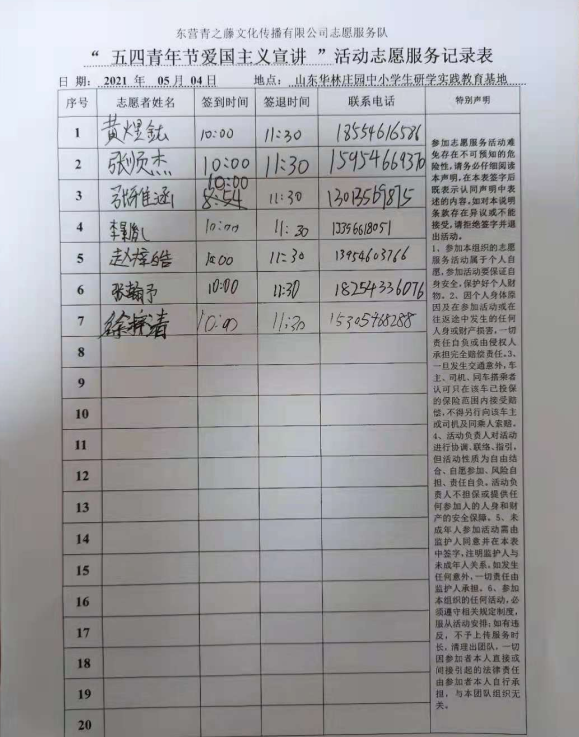 东营青之藤文化传播有限公司志愿服务队
“ 五四青年节爱国主义宣讲 ”活动志愿服务记录表
日 期： 2021 年 05 月 04 日 地点： 山东华林庄园中小学生研学实践教育基地
序号 志愿者姓名 签到时间 签退时间 联系电话 特别声明
1 黄煜鈜 10:00 11:30 18554616586
2 张顺杰 10:00 11:30
3 10:00 11:30
4 10:00 11:30
5 11:30 13954603766
6 张翰予 10:00 11:30 18254336076
7 10:00 11:30 15305468288
8
9
10
11
12
13
14
15
16
17
18
19
20
参加志愿服务活动难
免存在不可预知的危
险性,请务必仔细阅读
本声明,在本表签字后
既表示认同声明中表
述的内容,如对本说明
条款存在异议或不能
接受,请拒绝签字并退
出活动。
1、参加本组织的志愿
服务活动属于个人自
愿,参加活动要保证自
身安全,保护好个人财
物。2、因个人身体原
因及在参加活动或在
往返途中发生的任何
人身或财产损害,一切
责任自负或由侵权人
承担完全赔偿责任。3、
一旦发生交通意外,车
主、司机、同车搭乘者
认可只在该车已投保
的保险范围内接受赔
偿,不得另行向该车主
或司机及同乘人索赔。
4、活动负责人对活动
进行协调、联络、指引,
但活动性质为自由结
合、自愿参加、风险自
担、责任自负。活动负
责人不担保或提供任
何参加人的人身和财
产的安全保障。5、未
成年人参加活动需由
监护人同意并在本表
中签字,注明监护人与
未成年人关系,如发生
任何意外,一切责任由
监护人承担。6、参加
本组织的任何活动,必
须遵守相关规定制度,
服从活动安排;如有违
反,不予上传服务时
长,清理出团队,一切
因参加者本人直接或
间接引起的法律责任
由参加者本人自行承
担,与本团队组织无
关。